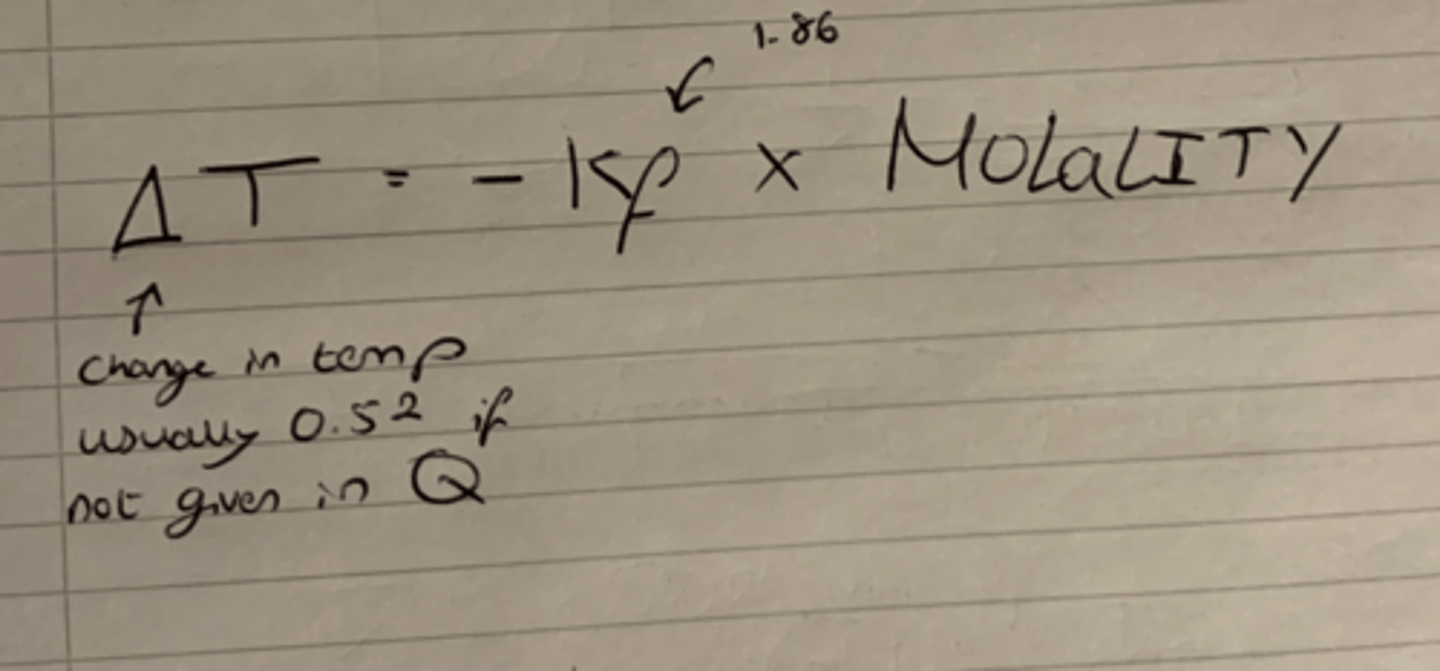 1.86
↙
ΔT = - Kf × MOLaLITY
↑
change in temp
usually 0.52 if
not given in Q